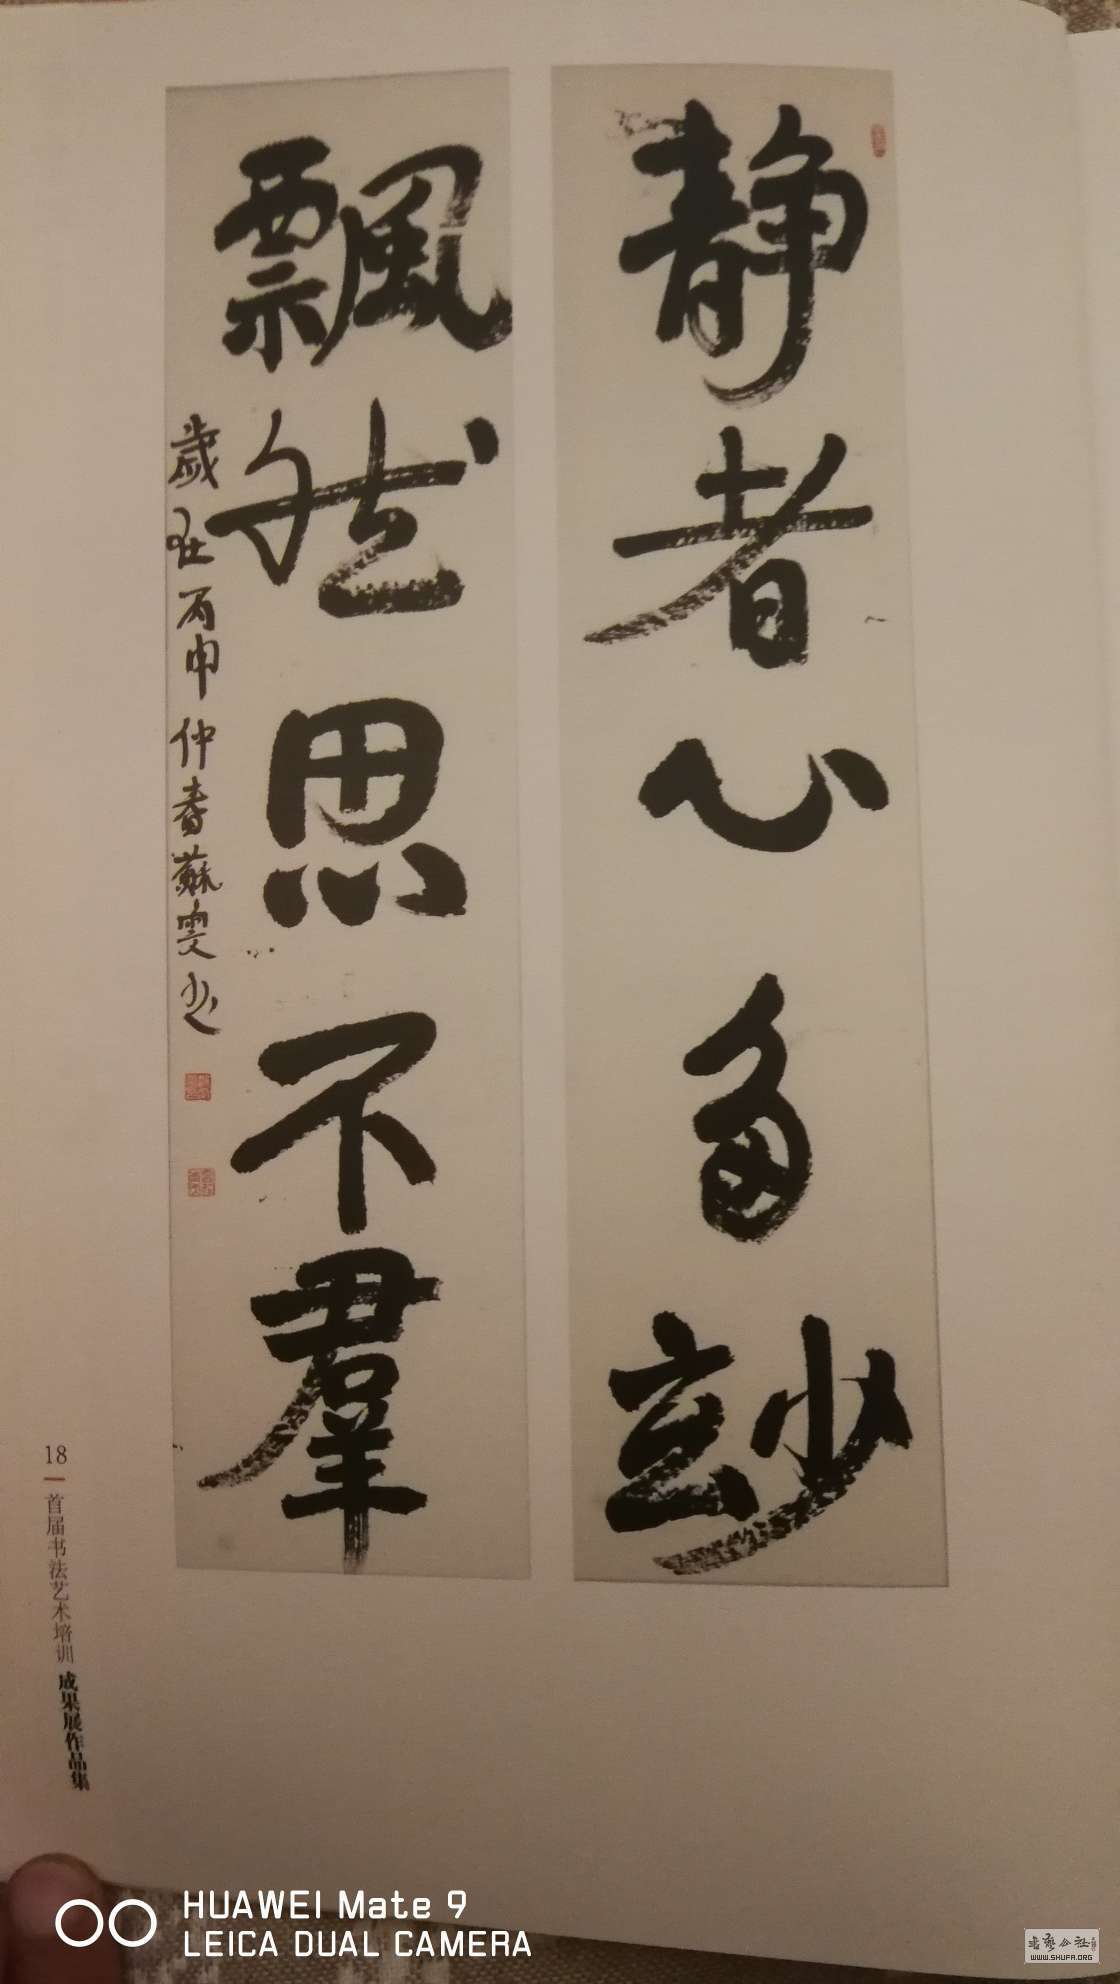 静者心多妙
飘然思不群
歲在丙申仲春蘇雯書
18
首届书法艺术培训 成果展作品集
HUAWEI Mate 9
LEICA DUAL CAMERA
WWW.SHUFA.ORG